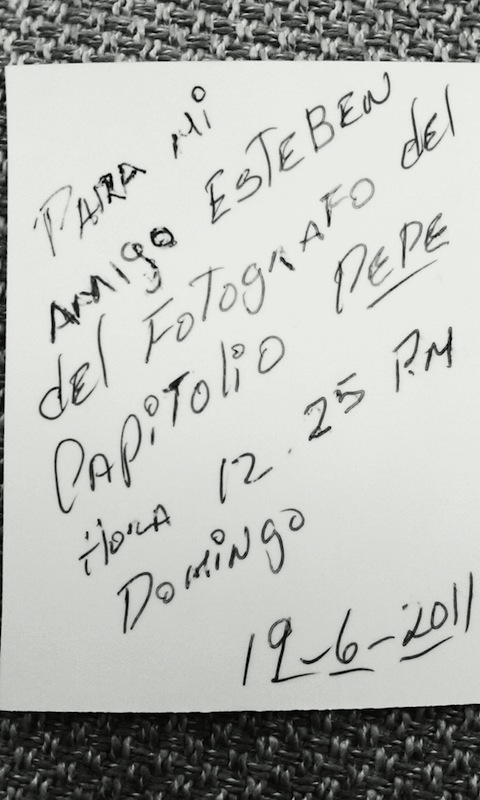 PARA Mi
AMigo ESTEBEN
del FoTogRAFO del
CAPiTOliO PEPE
HORA 12.25 P.M
DOMiNgO
19-6-2011